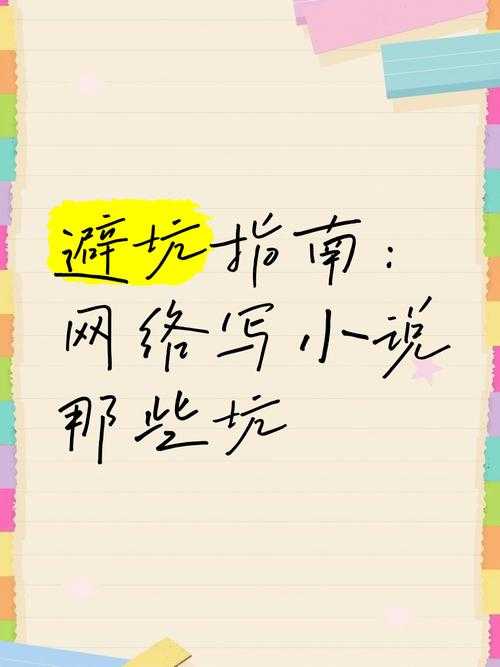 避坑指南：
网络写小说
那些坑